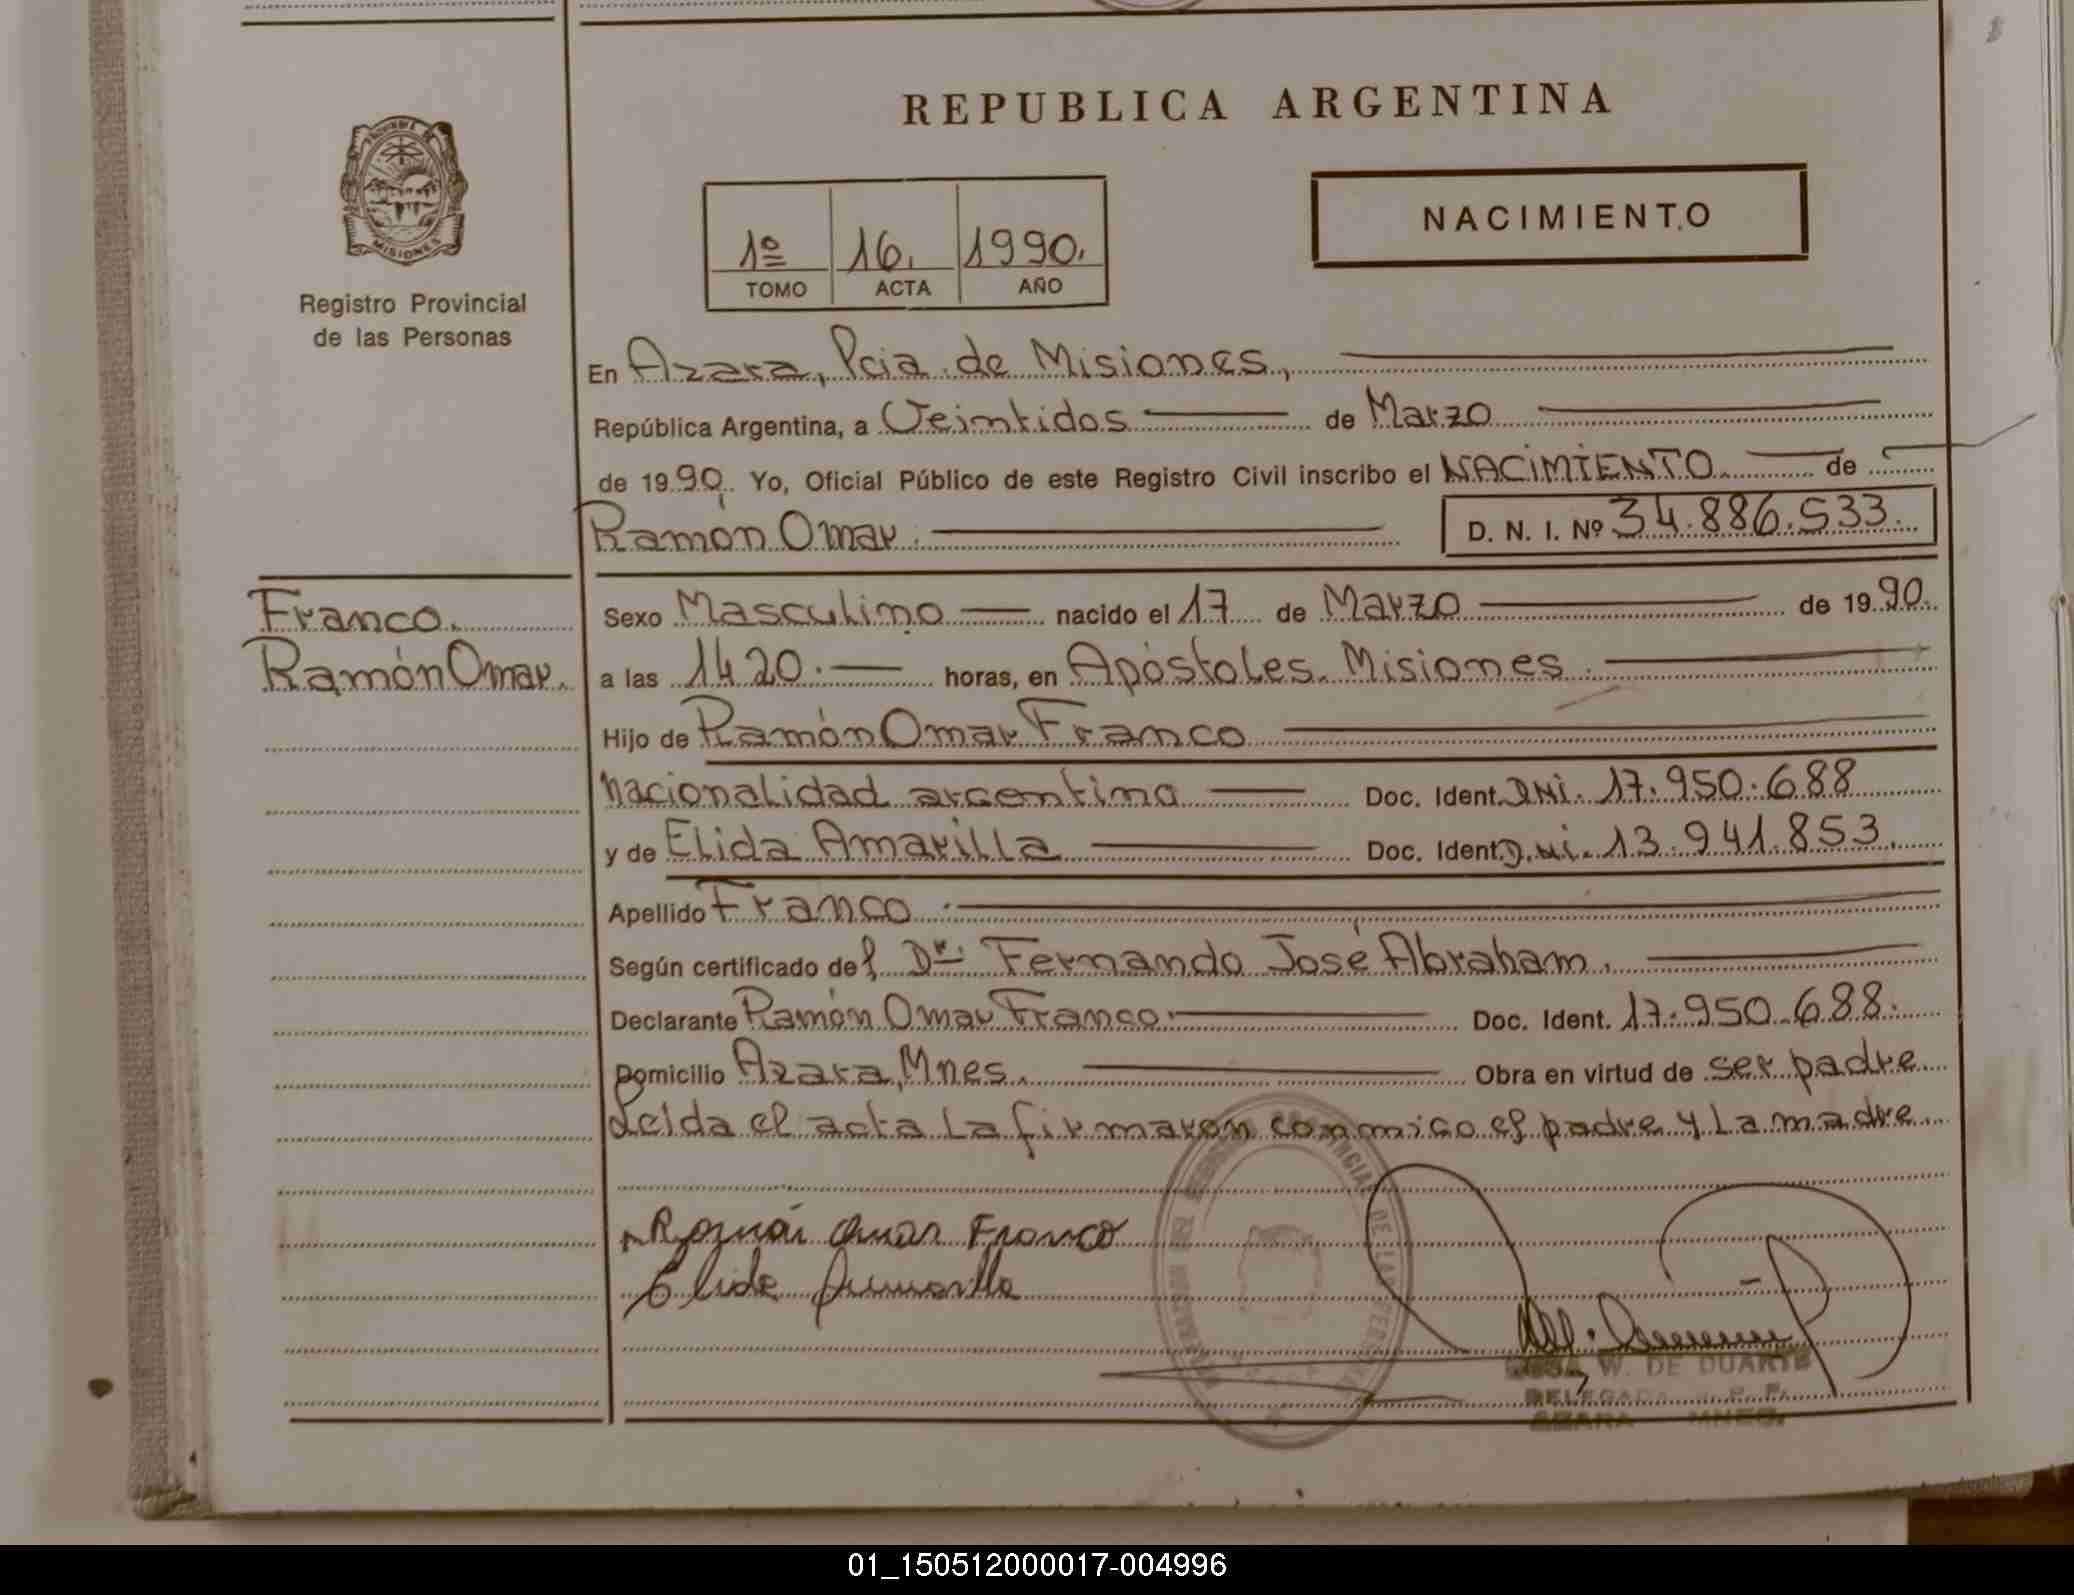 REPUBLICA ARGENTINA
NACIMIENTO
1º 16. 1990.
TOMO ACTA AÑO
MISIONES
Registro Provincial
de las Personas
En Azara, Pcia de Misiones,
República Argentina, a Veintidos de Marzo
de 1990. Yo, Oficial Público de este Registro Civil inscribo el NACIMIENTO de
Ramón Omar. D. N. I. Nº 34.886.533.
Franco.
Ramón Omar.
Sexo Masculino nacido el 17 de Marzo de 1990.
a las 14 20. horas, en Apóstoles. Misiones.
Hijo de Ramón Omar Franco
Nacionalidad argentina Doc. Ident. DNI. 17.950.688
y de Elida Amarilla Doc. Ident. D.NI. 13.941.853.
Apellido Franco.
Según certificado del Dr. Fernando José Abraham.
Declarante Ramón Omar Franco. Doc. Ident. 17.950.688.
Domicilio Azara, Mnes. Obra en virtud de ser padre
Leida el acta la firmaron conmigo el padre y la madre
Ramón Omar Franco
Elida Amarilla
W. DE DUARTE
DELEGADA R. P. P.
AZARA MNES.
01_150512000017-004996